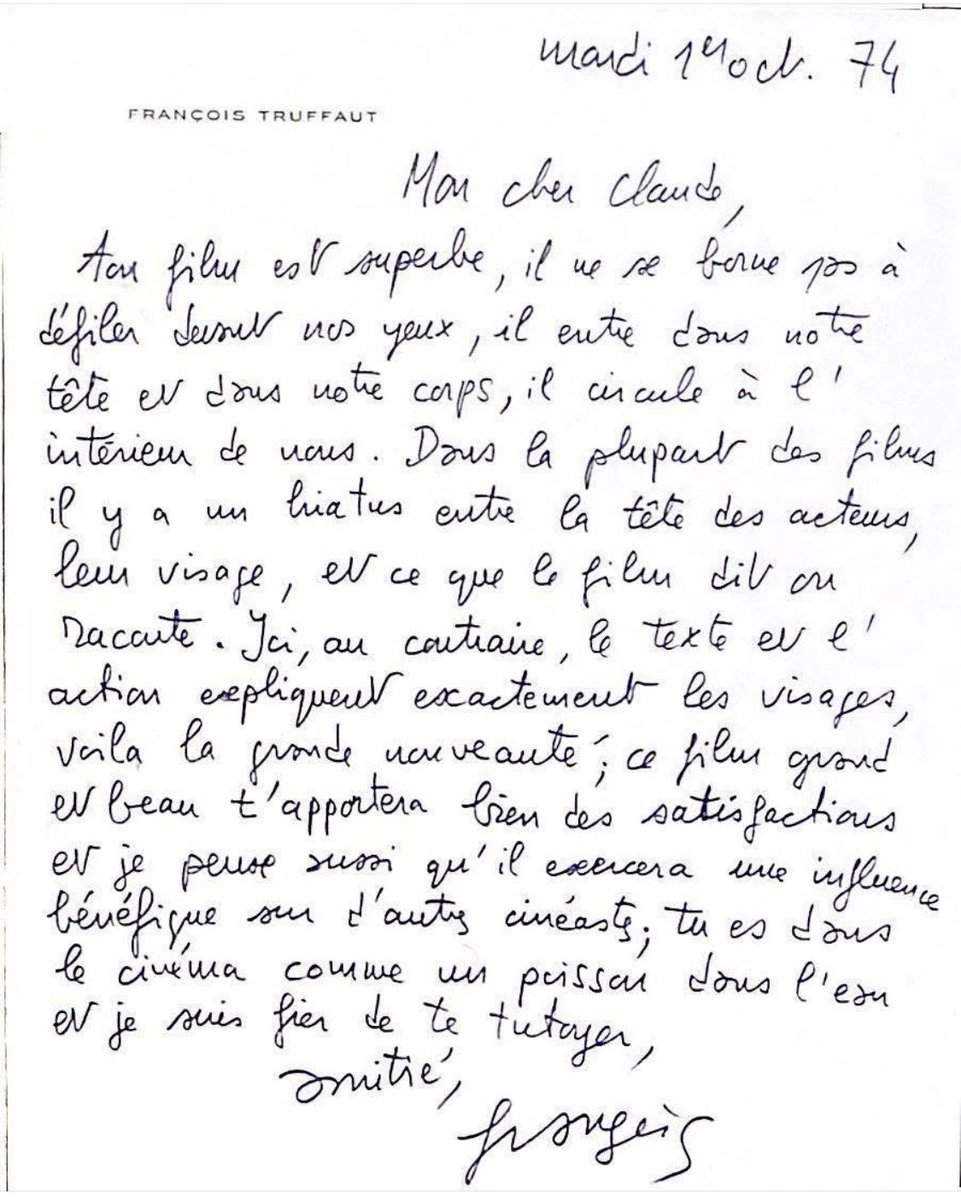 mardi 1er oct. 74
FRANÇOIS TRUFFAUT
Mon cher Claude,
Ton film est superbe, il ne se borne pas à
défiler devant nos yeux, il entre dans notre
tête et dans notre corps, il circule à l'
intérieur de nous. Dans la plupart des films
il y a un hiatus entre la tête des acteurs,
leur visage, et ce que le film dit ou
raconte. Ici, au contraire, le texte et l'
action expliquent exactement les visages,
voila la grande nouveauté; ce film grand
et beau t'apportera bien des satisfactions
et je pense aussi qu'il exercera une influence
bénéfique sur d'autres cinéastes; tu es dans
le cinéma comme un poisson dans l'eau
et je suis fier de te tutoyer,
amitié,
françois